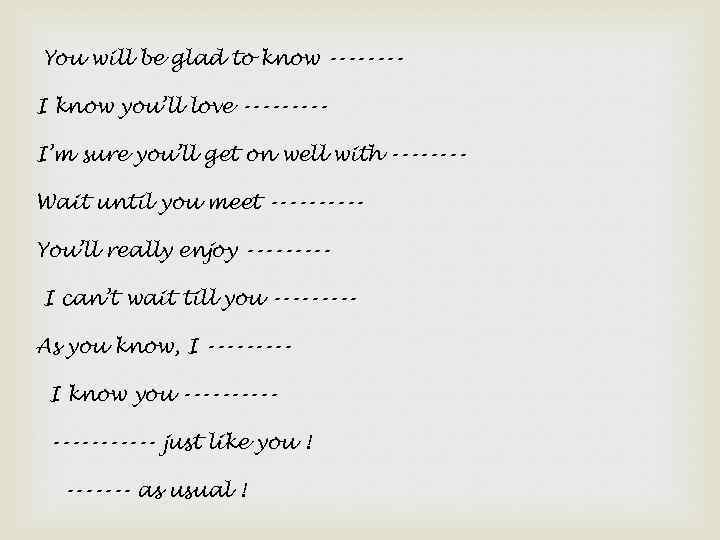 You will be glad to know --------
I know you’ll love ---------
I’m sure you’ll get on well with --------
Wait until you meet ----------
You’ll really enjoy ---------
I can’t wait till you ---------
As you know, I ---------
I know you ----------
----------- just like you !
------- as usual !